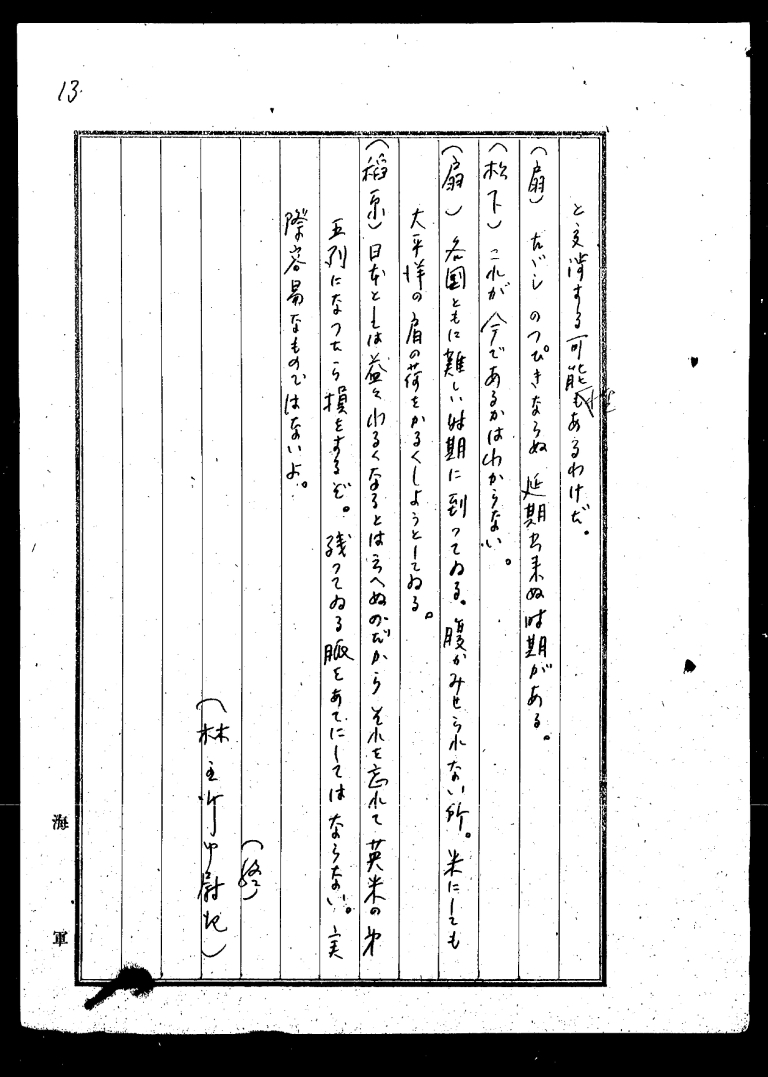 13.
と交渉する可能性もあるわけだ。
(扇) たゞしのっぴきならぬ延期出来ぬ時期がある。
(松下) これが今であるかはわからない。
(扇) 各国ともに難しい時期に到ってゐる。腹がみせられない所。米にしても
大平洋の肩の荷をかるくしようとしてゐる。
(稻原) 日本としは益々わるくなるとは云へぬのだから それを忘れて英米の第
五列になつたら損をするぞ。残ってゐる脈をあてにしてはならない。実
際容易なものではないよ。
(終)
(林主計中尉記)
海軍